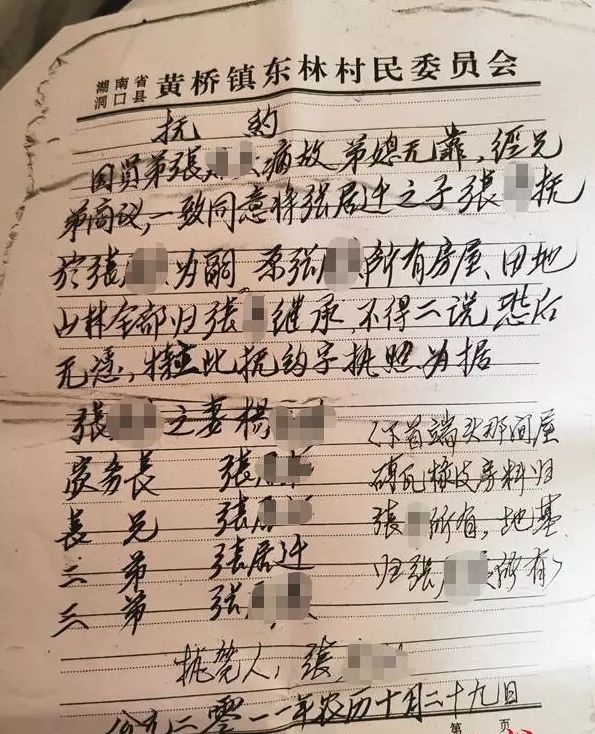 湖南省
洞口县
黄桥镇东林村民委员会
抚约
因贤弟张病故弟媳无靠,經兄
弟商议,一致同意将张居迁之子张抚
於张为嗣 原张所有房屋、田地
山林全部归张继承,不得二说 恐后
无憑,特立此抚约字执照为据
张之妻楊
家务長 张居
長兄 张居
二弟 张居迁
三弟 张
(下首端头那间屋
砖瓦椽皮房料归
张所有,地基
归张所有)
执笔人:张
公元二零一一年农历十月二十九日
第 页